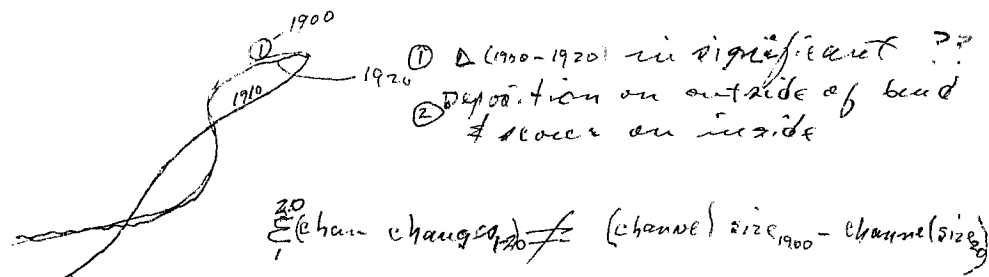 1900
①
1920
1910
① Δ (1900-1920) in significant ??
② Deposition on outside of bend
& scour on inside
20
Σ (chan changes 1-20) ≠ (channel) size 1900 - channel (size 20)
1